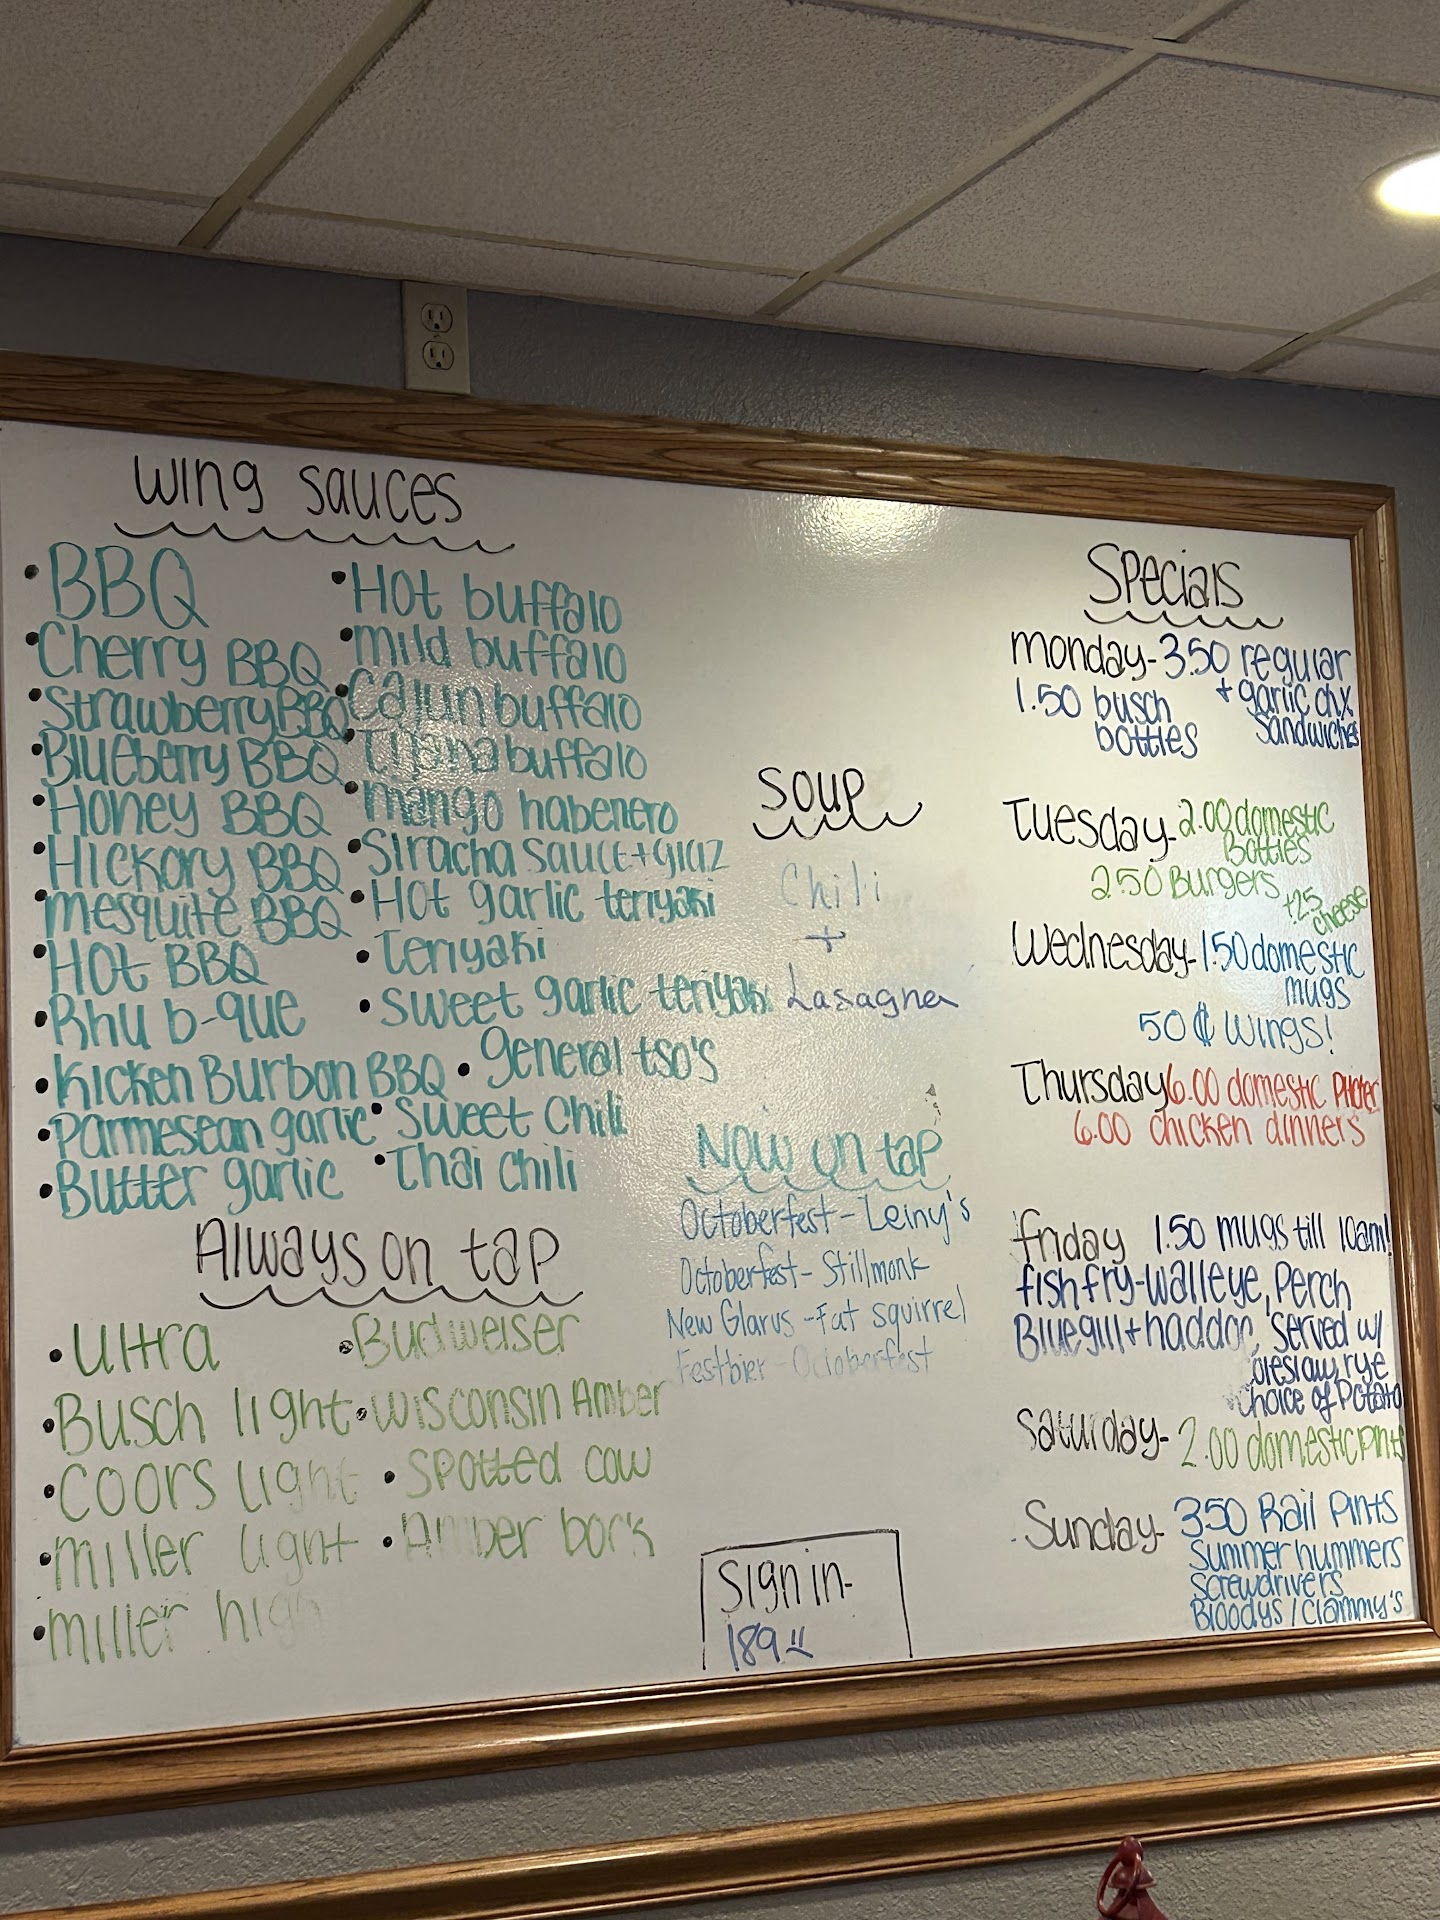 Wing Sauces
• BBQ
• Cherry BBQ
• Strawberry BBQ
• Blueberry BBQ
• Honey BBQ
• Hickory BBQ
• mesquite BBQ
• Hot BBQ
• Rhu b-que
• Kicken Burbon BBQ
• Parmesean garlic
• Butter garlic
• Hot buffalo
• mild buffalo
• Cajun buffalo
• Tijana buffalo
• mango habenero
• Siracha sauce + glaz
• Hot garlic teriyaki
• Teriyaki
• Sweet garlic teriyaki
• general tso's
• Sweet Chili
• Thai chili
Always on tap
• Ultra
• Busch light
• Coors light
• miller light
• miller high
• Budweiser
• Wisconsin Amber
• Spotted cow
• Amber bock
Soup
Chili
+
Lasagna
Now on tap
Octoberfest - Leiny's
Octoberfest - Stillmonk
New Glarus - Fat squirrel
Festbier - Octoberfest
Sign in-
189
Specials
monday- 3.50 regular
+ garlic chx
sandwiches
1.50 busch
bottles
Tuesday- 2.00 domestic
Bottles
2.50 Burgers
+.25
cheese
Wednesday- 1.50 domestic
mugs
50¢ wings!
Thursday 6.00 domestic Pitcher
6.00 chicken dinners
friday 1.50 mugs till 10am!
fish fry-walleye, Perch
Bluegill + haddoc, served w/
coleslaw, rye
choice of Potato
Saturday- 2.00 domestic pints
Sunday- 3.50 Rail Pints
Summer hummers
Screwdrivers
Bloodys / Clammy's